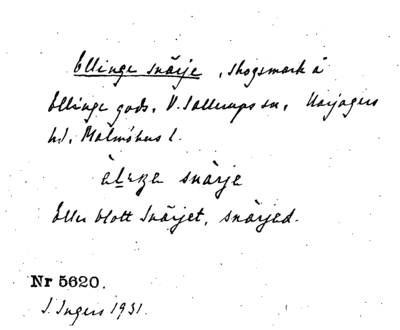 Ellinge snärje, skogsmark å
Ellinge gods, V. Sallerups sn, Harjagers
hd, Malmöhus l.
snärje
Eller blott Snärjet, snärjed.
Nr 5620.
J. Ingers 1931.